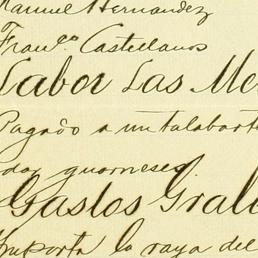 Manuel Hernandez
Fran.co Castellanos
Labor Las Me
Pagado a un talabart
das guarneses
Gastos Gral
Importa la raya del